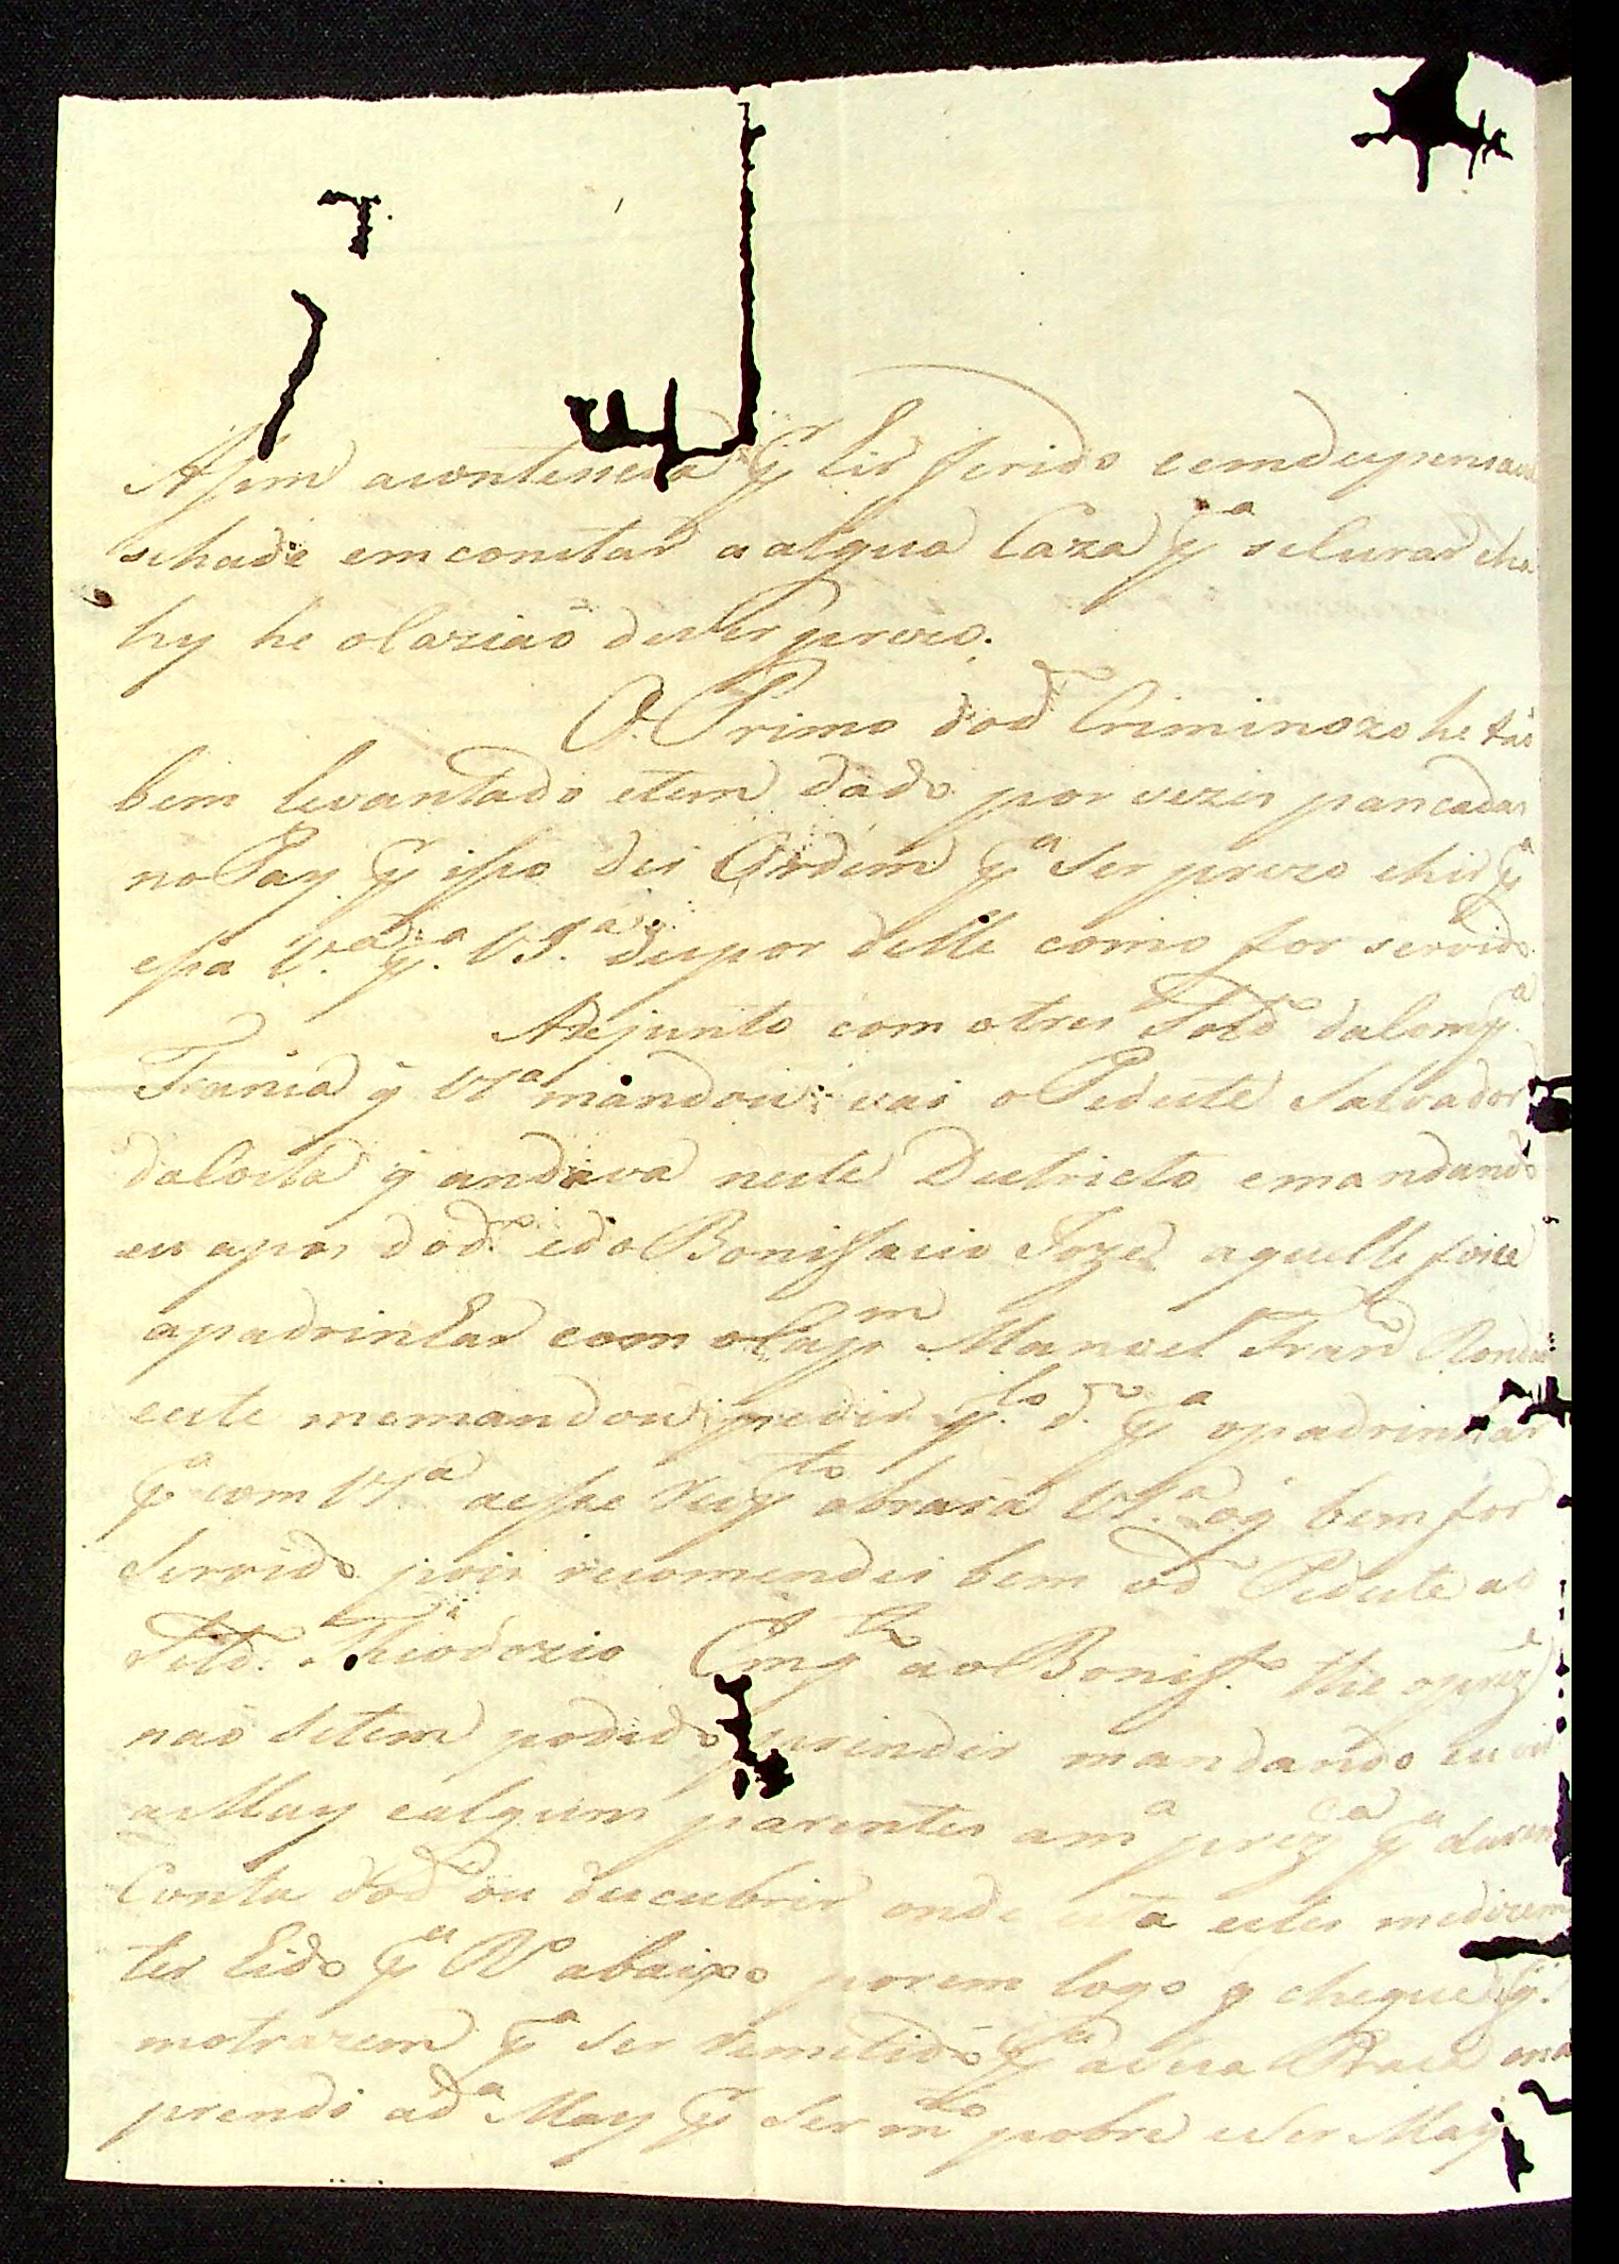 Assim acontessera p.r hir ferido e em despensavel
se hade em constar a algua Caza p.a se curar e ha
hy he o laziaõ de ser prezo.
O Primo do d.o Criminozo he tão
bem levantado e tem dado por vezes pancadas
no Pay p.r isso dei Ordem p.a ser prezo e hir p.a
essa V.a p.a V S.a dispor delle como for servido.
Adejunto com os tres Sold.os da Comp.a
Franca q̃ VS.a mandou vai o Pedeste Salvador
da Costa q̃ andava neste Destricto e mandando
eu apos do d.o e do Boniffacio Joze aquelle foise
apadrinhar com o Cap.m Manoel Fran.co
e este me mandou pedir p.lo d.o p.a o padrinhar
p.a com VS.a a esse resp.to obrará VS.a o q̃ bem for
Servido pois recomendei bem o d.o Pedeste ao
Sold.o Theodozio Emq.to ao Bonif.o the o prez.e
naõ se tem podido prindir mandando eu vir
a May e alguns parentes a m.a prez.ca p.a darem
Conta do d.o ou descubrir onde está estes me dizem
ter hido p.a R.o abaixo porem logo q̃ chegue
mo trazem p.a ser remetido p.a a sua Praca
prendi a d.a May p.r ser m.to pobre e ser May